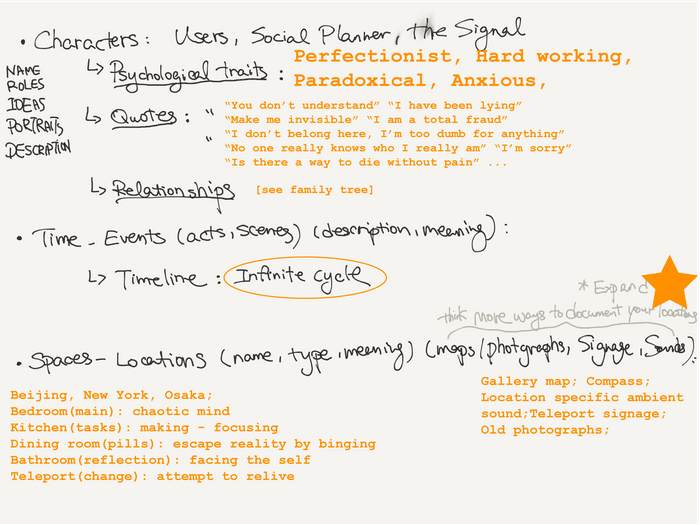 • Characters: Users, Social Planner, the Signal
NAME
ROLES
IDEAS
PORTRAITS
DESCRIPTION
↳ Psychological traits :
Perfectionist, Hard working,
Paradoxical, Anxious,
↳ Quotes : "
"
“You don’t understand” “I have been lying”
“Make me invisible” “I am a total fraud”
“I don’t belong here, I’m too dumb for anything”
“No one really knows who I really am” “I’m sorry”
“Is there a way to die without pain” ...
↳ Relationships [see family tree]
• Time - Events (acts, scenes) (description, meaning) :
↳ Timeline : Infinite cycle
* Expand
think more ways to document your locations
• Spaces - Locations (name, type, meaning) (maps/photgraphs, Signage, Sounds).
Beijing, New York, Osaka;
Bedroom(main): chaotic mind
Kitchen(tasks): making - focusing
Dining room(pills): escape reality by binging
Bathroom(reflection): facing the self
Teleport(change): attempt to relive
Gallery map; Compass;
Location specific ambient
sound;Teleport signage;
Old photographs;